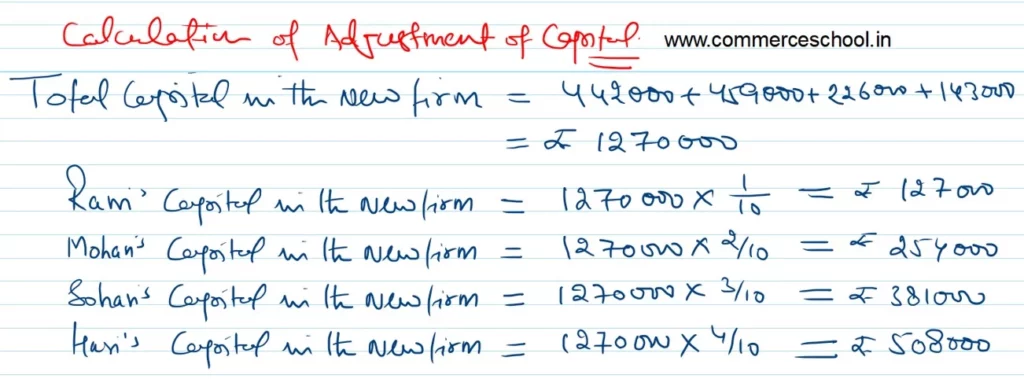 Calculation of Adjustment of Capital. www.commerceschool.in
Total Capital in the new firm = 442000 + 459000 + 226000 + 143000
= ₹ 1270000
Ram's Capital in the New firm = 1270000 × 1/10 = ₹ 127000
Mohan's Capital in the New firm = 1270000 × 2/10 = ₹ 254000
Sohan's Capital in the New firm = 1270000 × 3/10 = ₹ 381000
Hari's Capital in the New firm = 1270000 × 4/10 = ₹ 508000